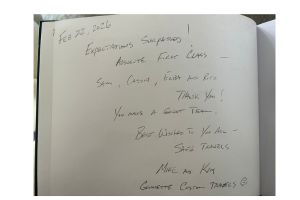 Feb 22, 2026
Expectations Surpassed!
Absolute First Class —
Sam, Cassia, and
Thank You!
You have a Great Team.
Best Wishes To You All —
Safe Travels
Mike and Kim
Custom Travels ☺